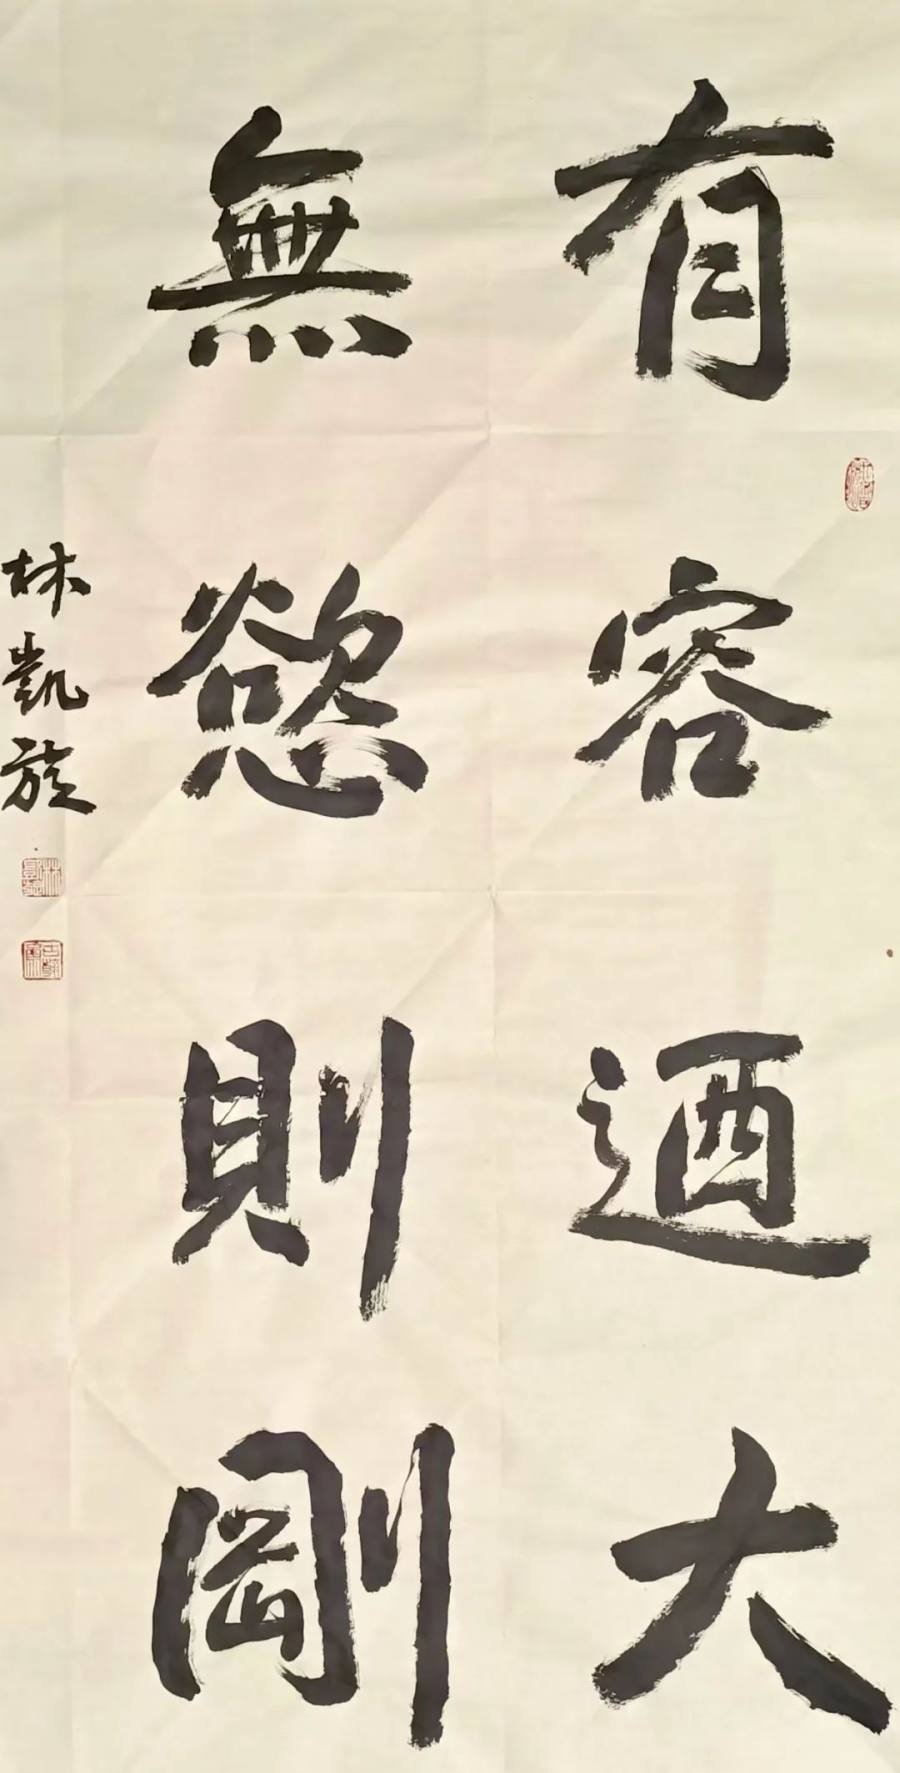 有容迺大
無慾則剛
林凱旋